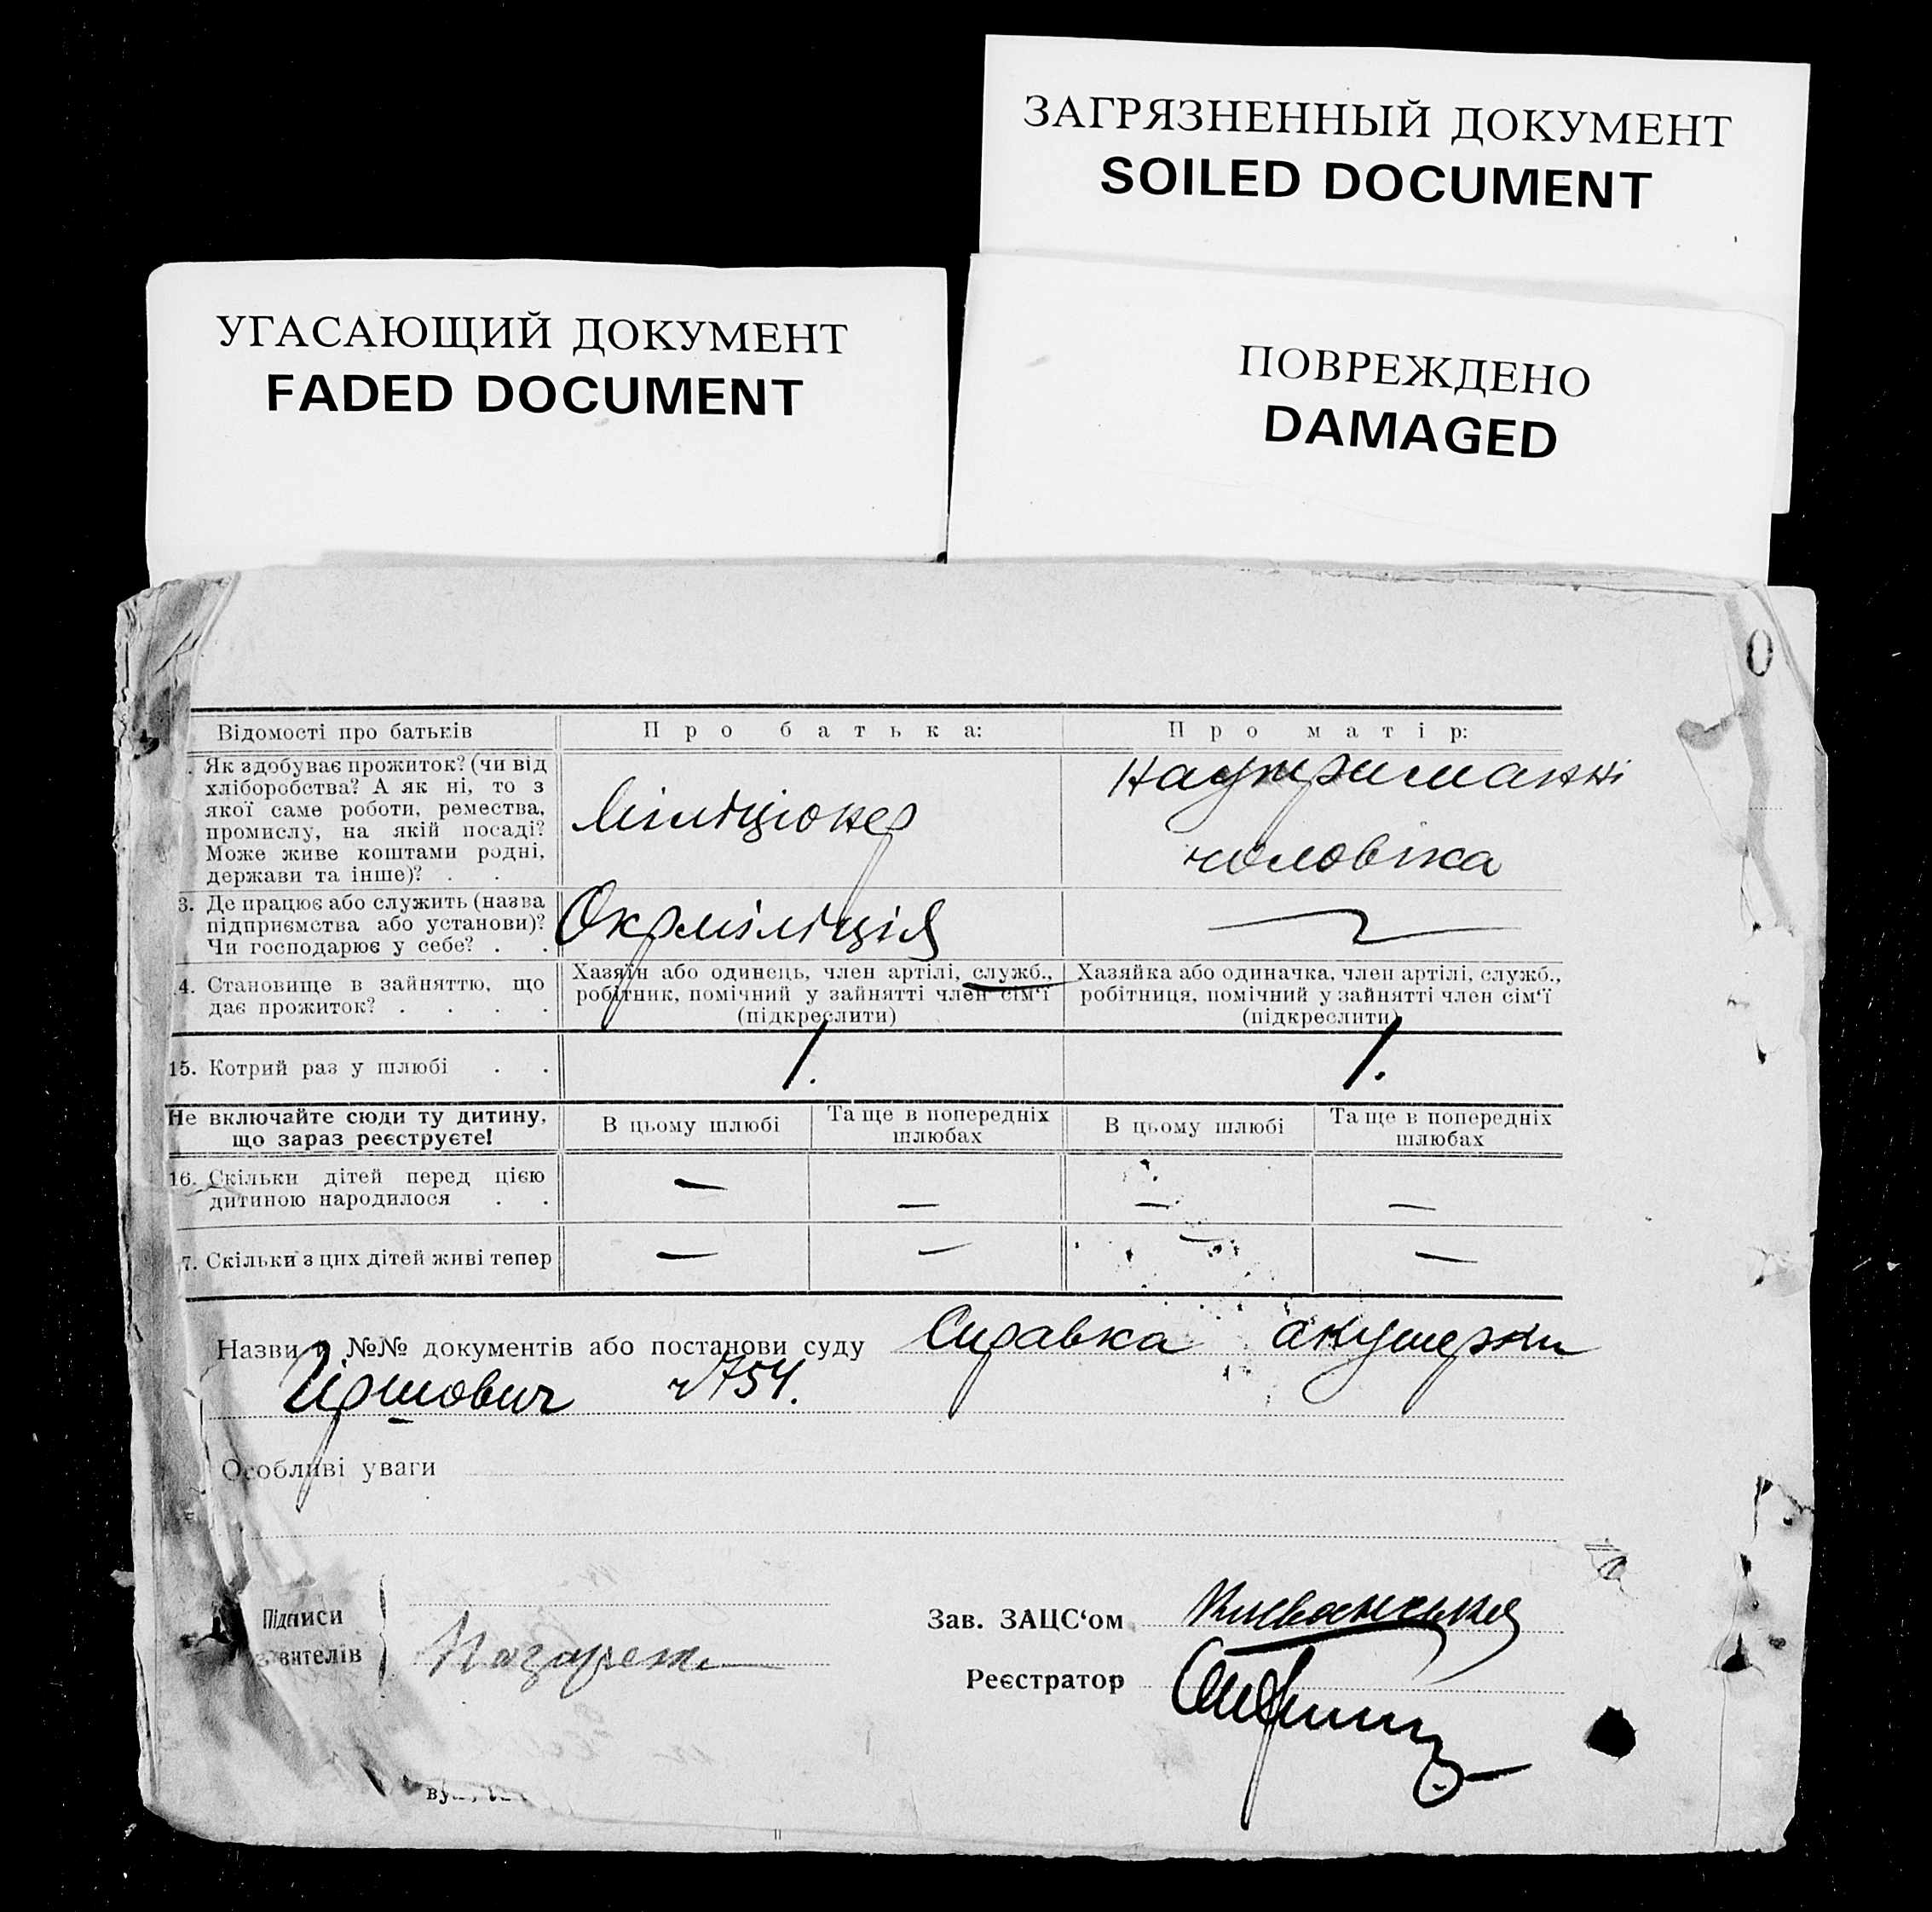 ЗАГРЯЗНЕННЫЙ ДОКУМЕНТ
SOILED DOCUMENT
УГАСАЮЩИЙ ДОКУМЕНТ
FADED DOCUMENT
ПОВРЕЖДЕНО
DAMAGED
Відомості про батьків
Про батька:
Про матір:
Як здобуває прожиток? (чи від
хліборобства? А як ні, то з
якої саме роботи, ремества,
промислу, на якій посаді?
Може живе коштами родні,
держави та інше)? . .
Міліціонер
На утриманні
чоловіка
3. Де працює або служить (назва
підприємства або установи)?
Чи господарює у себе? . .
Окрміліція
—
4. Становище в зайняттю, що
дає прожиток? . . . .
Хазяїн або одинець, член артілі, служб.,
робітник, помічний у зайнятті член сім‘ї
(підкреслити)
Хазяйка або одиначка, член артілі, служб.,
робітниця, помічний у зайнятті член сім‘ї
(підкреслити)
15. Котрий раз у шлюбі . .
1.
1.
Не включайте сюди ту дитину,
що зараз реєструєте!
В цьому шлюбі
Та ще в попередніх
шлюбах
В цьому шлюбі
Та ще в попередніх
шлюбах
16. Скільки дітей перед цією
дитиною народилося . .
— — — —
7. Скільки з цих дітей живі тепер
— — — —
Назви й №№ документів або постанови суду Справка акушерки
Гіршович №754.
Особливі уваги
Підписи
Зав. ЗАЦС‘ом
Назарет
Реєстратор